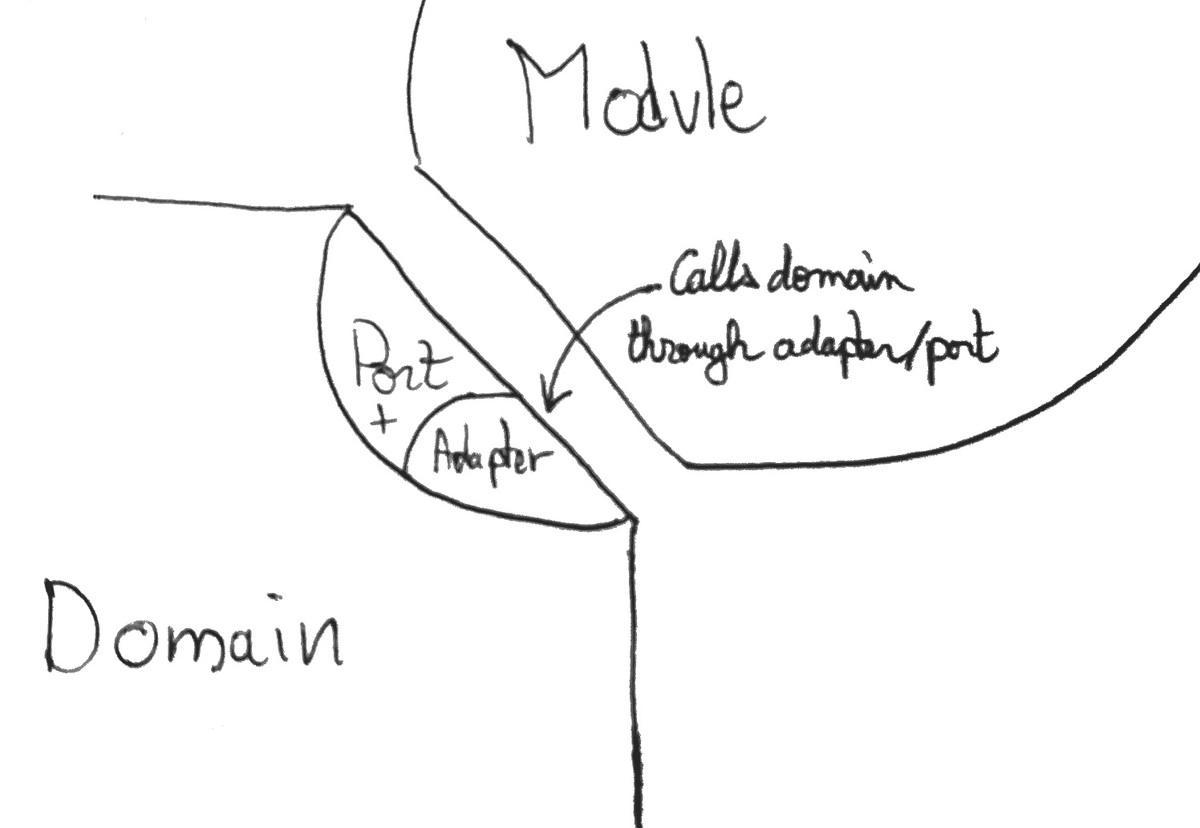 Module
Calls domain
through adapter/port
Port
+
Adapter
Domain